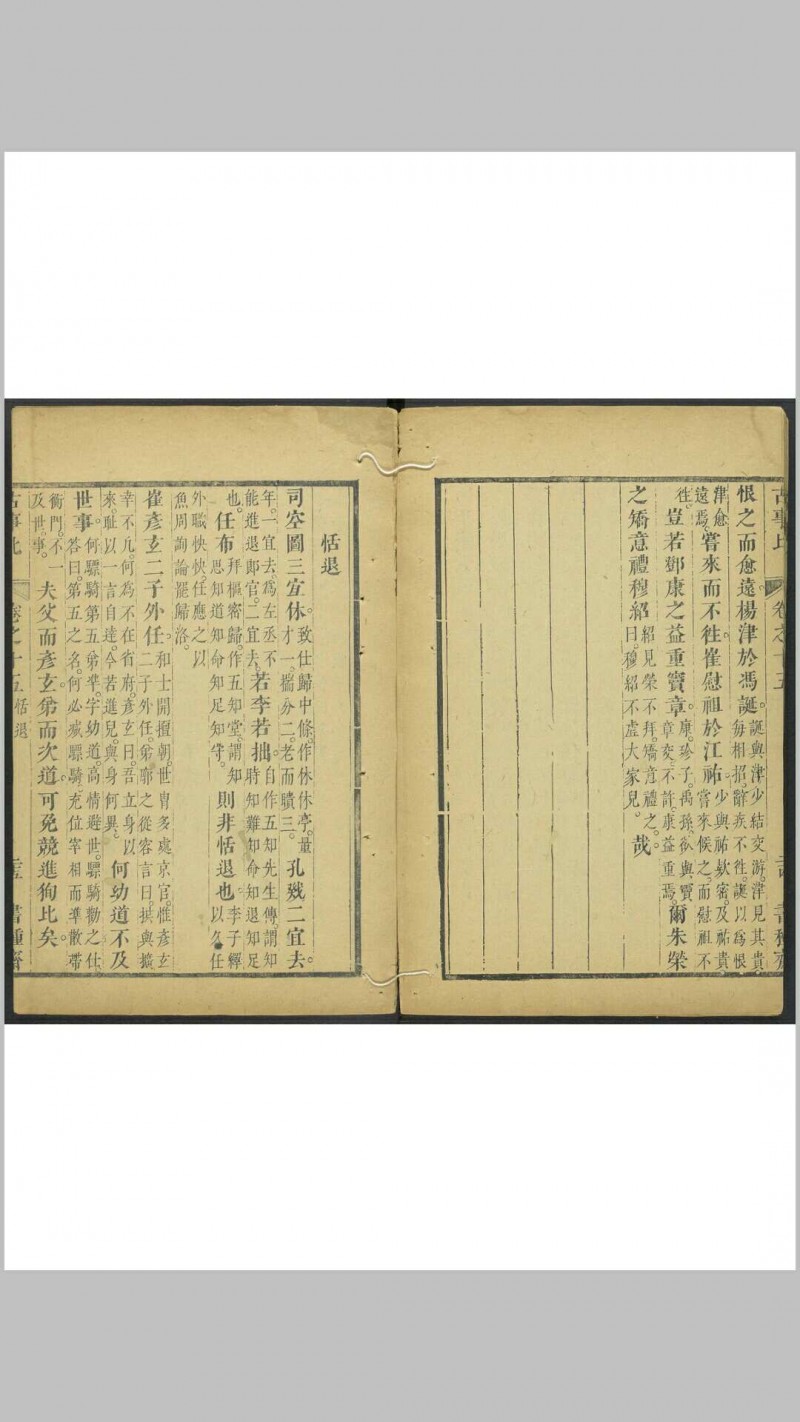 古事比 卷之十五 書種齋
恨之而愈遠楊津於馮誕誕與津少結交游。津見其貴。每相招。辭疾不徃。誕以為恨
津愈遠焉。嘗來而不徃。崔慰祖於江祏。少與祏欵密。及祏貴。嘗來候之。而慰祖不
徃。豈若鄧康之益重竇章。康。珍子。禹孫。欲與竇章交。不許。康益重焉。爾朱榮
之矯意禮穆紹紹見榮不拜。矯意禮之。曰。穆紹不虛大家兒。哉。
恬退
司空圖三宜休。致仕歸中條。作休休亭。量才一。揣分二。老而聵三。孔戣二宜去。
年。一宜去。為左丞不能進退郎官。二宜去。若李若拙。自作五知先生傳。謂知時知難知命知退知足
也。任布拜樞密歸。作五知堂。謂知恩知道知命知足知幸。則非恬退也。李子繹以久任
外職怏怏。任應之以魚周詢論罷歸洛。
崔彥玄二子外任。和士開擅朝。世胄多處京官。惟彥玄二子外任。弟廓之從容言曰。拱與撝
幸不凡。何為不在省府。彥玄曰。吾立身以來。耻以一言自達。今若進兒。與身何異。何幼道不及
世事。何驃騎第五弟準。字幼道。高情避世。驃騎勸之仕。答曰。第五之名。何必減驃騎。充位宰相而準散帶
衡門。不及世事。一夫父而彥玄。弟而次道。可免競進狥比矣。
古事比 卷之十五 恬退 書種齋